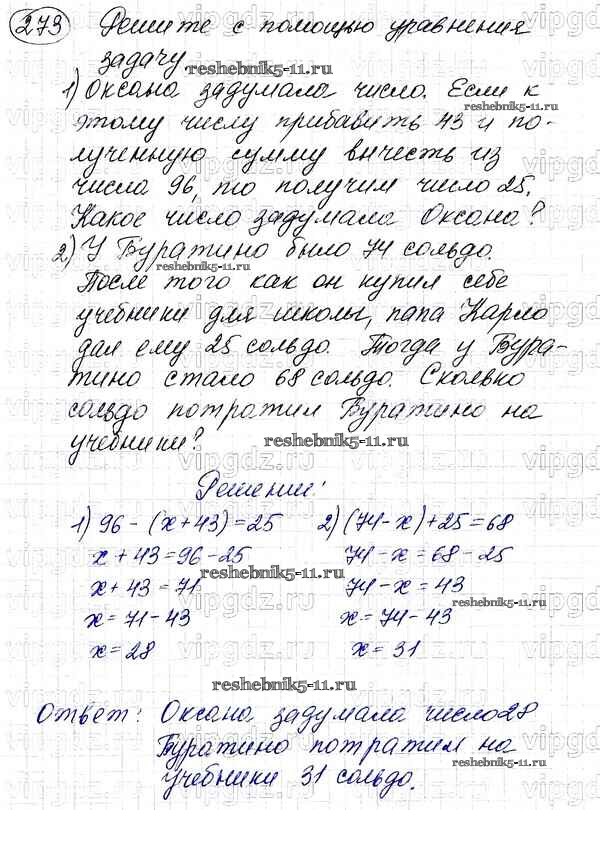 273 Решите с помощью уравнения
задачу
reshebnik5-11.ru
1) Оксана задумала число. Если к
этому числу прибавить 43 и по-
лученную сумму вычесть из
числа 96, то получим число 25.
Какое число задумала Оксана?
2) У Буратино было 74 сольдо.
reshebnik5-11.ru
После того как он купил себе
учебники для школы, папа Карло
дал ему 25 сольдо. Тогда у Бура-
тино стало 68 сольдо. Сколько
сольдо потратил Буратино на
учебники?
reshebnik5-11.ru
Решение:
1) 96 - (x+43)=25
x+43=96-25
x+43=71
x=71-43
x=28
2) (74-x)+25=68
74-x=68-25
74-x=43
x=74-43
x=31
reshebnik5-11.ru
reshebnik5-11.ru
reshebnik5-11.ru
Ответ: Оксана задумала число 28
Буратино потратил на
учебники 31 сольдо.
reshebnik5-11.ru
vipgdz.ru